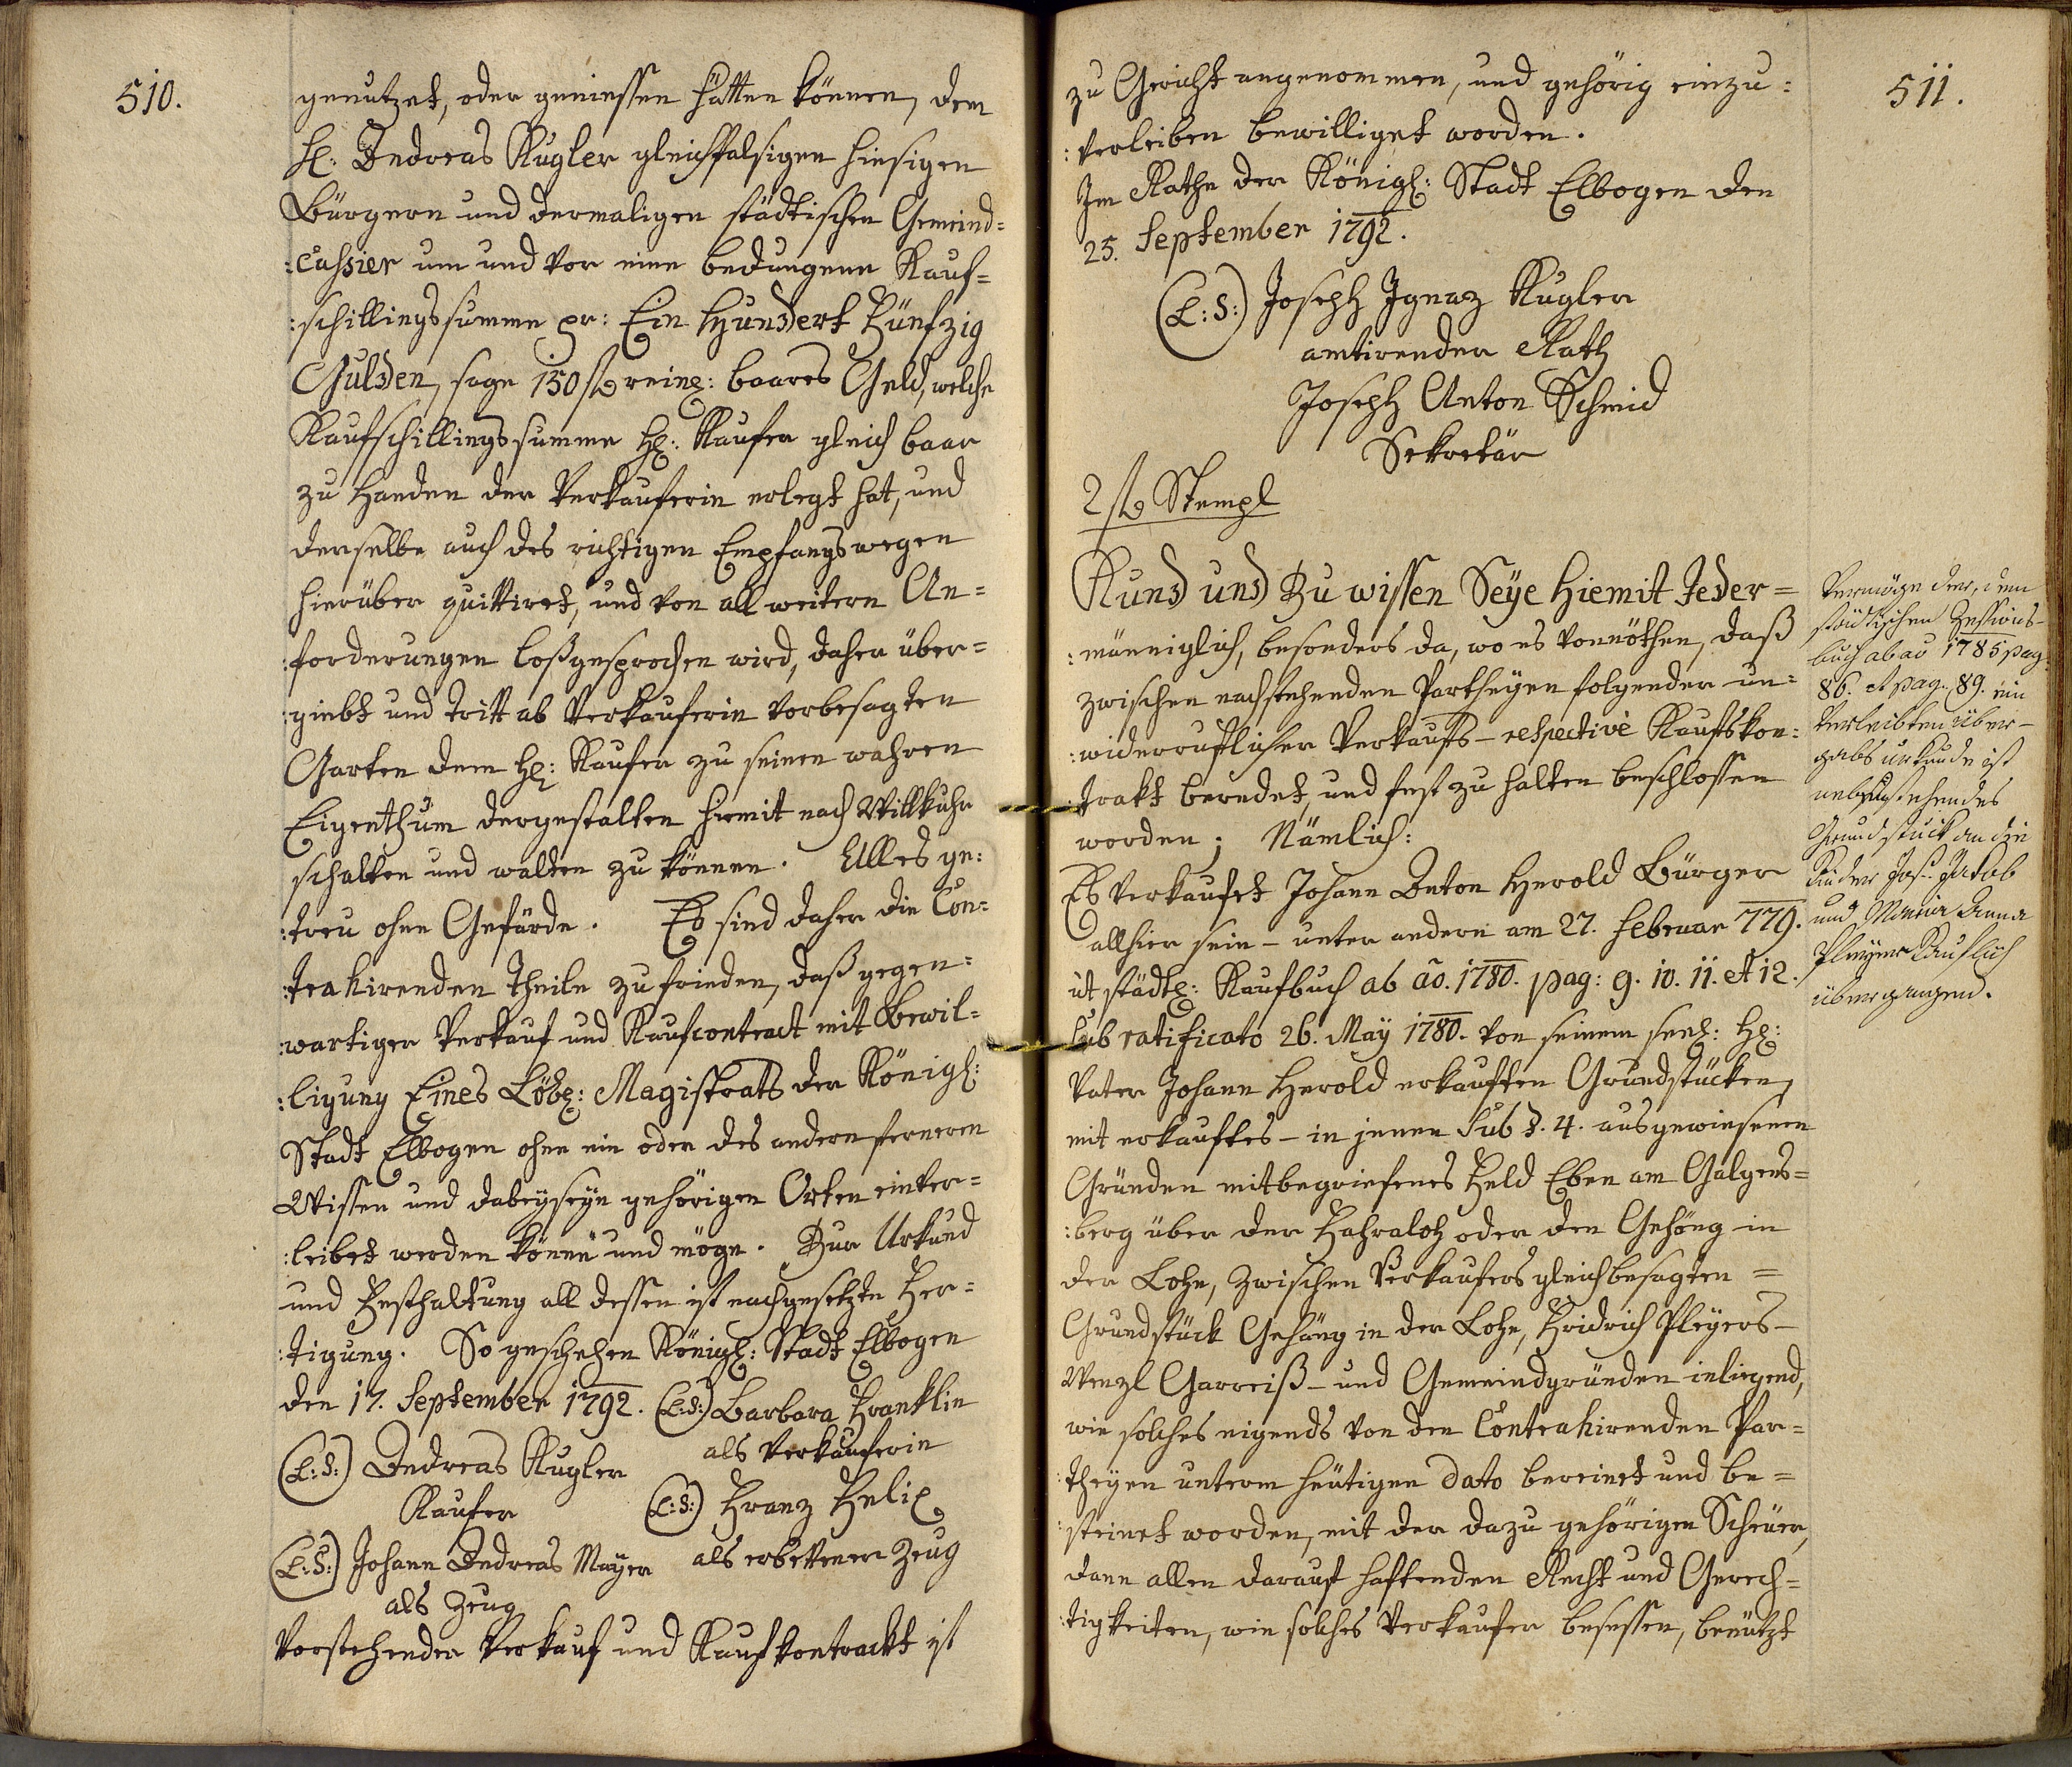 510.
genutzet, oder geniessen hätten können, dem
H: Andreas Kugler gleichfalsigen hiesigen
Bürgern und dermaligen städtischen Gemeind=
:cassier um und vor eine bedungene Kauf=
:schillingssumme pr: Ein Hundert Fünfzig
Gulden, sage 150 fl reinl: baares Geld, welche
Kaufschillingssumme H: Kaufer gleich baar
zu Handen der Verkauferin erlegt hat, und
derselbe auch des richtigen Empfangs wegen
hierüber quittiret, und von all weitern An=
:forderungen loßgesprochen wird, daher über=
:giebt und tritt ab Verkauferin vorbesagten
Garten dem H: Kaufer zu seinen wahren
Eigenthum dergestalten hiemit nach Willkuhr
schalten und walten zu können. Alles ge:
:treu ohne Gefärde. Es sind daher die Con=
:trahirenden Theile zufrieden, daß gegen=
:wartiger Verkauf und Kaufcontract mit Bewil=
:ligung Eines Löbl: Magistrats der Königl:
Stadt Elbogen ohne ein oder des andern ferneren
Wissen und dabeyseyn gehörigen Orten einver=
:leibet werden könne und möge. Zur Urkund
und Festhaltung all dessen ist nachgesetzte Fer=
:tigung. So geschehen Königl: Stadt Elbogen
den 17. September 1792. (L:S:) Barbara Franklin
als Verkauferin
(L:S:) Andreas Kugler
Kaufer
(L:S:) Franz Felix
als erbettener Zeug
(L:S:) Johann Andreas Mayer
als Zeug
Vorstehender Verkauf und Kaufkontrackt ist
511.
zu Gericht angenommen, und gehörig einzu:
:verleiben bewilliget worden.
Im Rathe der Königl: Stadt Elbogen den
25. September 1792.
(L:S:) Joseph Ignaz Kugler
amtirender Rath
Joseph Anton Schmid
Sekretär
2 fl Stempl
Kund und Zu wissen Seye hiemit Jeder=
:männiglich, besonders da, wo es vonnöthen, daß
zwischen nachstehenden Partheyen folgender un=
:widerruflicher Verkaufs- respective Kaufskon:
:trakt beredet, und fest zu halten beschlossen
worden; Nämlich:
Es verkaufet Johann Anton Herold Bürger
allhier sein - unter andern am 27. Februar 779.
ut städtl: Kaufbuch ab ao. 1780. pag: 9. 10. 11. et 12.
sub ratificato 26. May 1780. von seinem seel: H:
Vater Johann Herold erkauften Grundstücken,
mit erkauftes - in jenen sub §. 4. ausgewiesenen
Gründen mitbegriefenes Feld Eben am Galgens=
:berg über der Hahraloh oder den Gehöng in
der Lohe, zwischen Verkaufers gleichbesagten =
Grundstück Gehäng in der Lohe, Fridrich Pleyers-
Wenzl Garreiß- und Gemeindgründen inliegend,
wie solches eigends von den Contrahirenden Par=
:theyen unterm heutigen dato bereinet und be=
:steinet worden, mit der dazu gehörigen Scheüer,
dann allen darauf haftenden Recht und Gerech=
:tigkeiten, wie solches Verkaufer besessen, benützt
Vermöge der, dem
städtischen Zessions-
buch ab ao 1785 pag:
86. et pag. 89. ein
verleibten über-
gabs urkunde ist
nebenstehendes
Grundstück an die
Kinder Jos: Jakob
und Maria Anna
Pleyer Kauflich
übergangen.